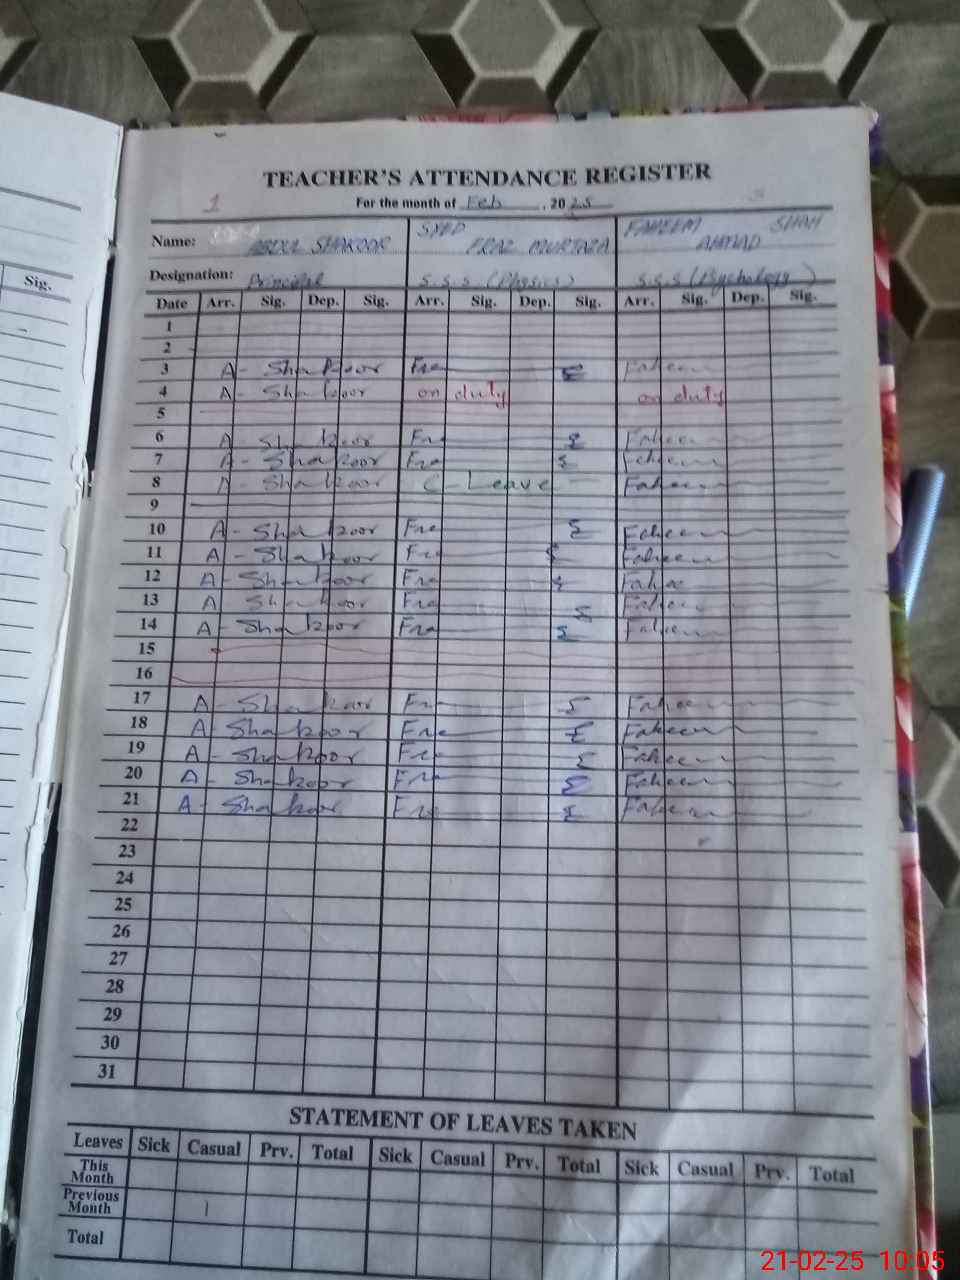 TEACHER'S ATTENDANCE REGISTER
1 For the month of Feb, 2025 3
Name: ABDUL SHAKOOR SYED FRAZ MURTAZA FAHEEM AHMAD SHAH
Designation: Principal S.S.S (Physics) S.S.S (Psychology)
Sig.
Date Arr. Sig. Dep. Sig. Arr. Sig. Dep. Sig. Arr. Sig. Dep. Sig.
1
2
3 A- Shakoor Fra Faheem
4 A- Shakoor on duty on duty
5
6 A- Shakoor Fra Faheem
7 A- Shakoor Fra Faheem
8 A- Shakoor C-Leave Faheem
9
10 A- Shakoor Fra Faheem
11 A- Shakoor Fra Faheem
12 A- Shakoor Fra Fahee
13 A- Shakoor Fra Faheem
14 A- Shakoor Fra Faheem
15
16
17 A- Shakoor Fra Faheem
18 A- Shakoor Fra Faheem
19 A- Shakoor Fra Faheem
20 A- Shakoor Fra Faheem
21 A- Shakoor Fra Faheem
22
23
24
25
26
27
28
29
30
31
STATEMENT OF LEAVES TAKEN
Leaves Sick Casual Prv. Total Sick Casual Prv. Total Sick Casual Prv. Total
This Month
Previous Month 1
Total
21-02-25 10:05